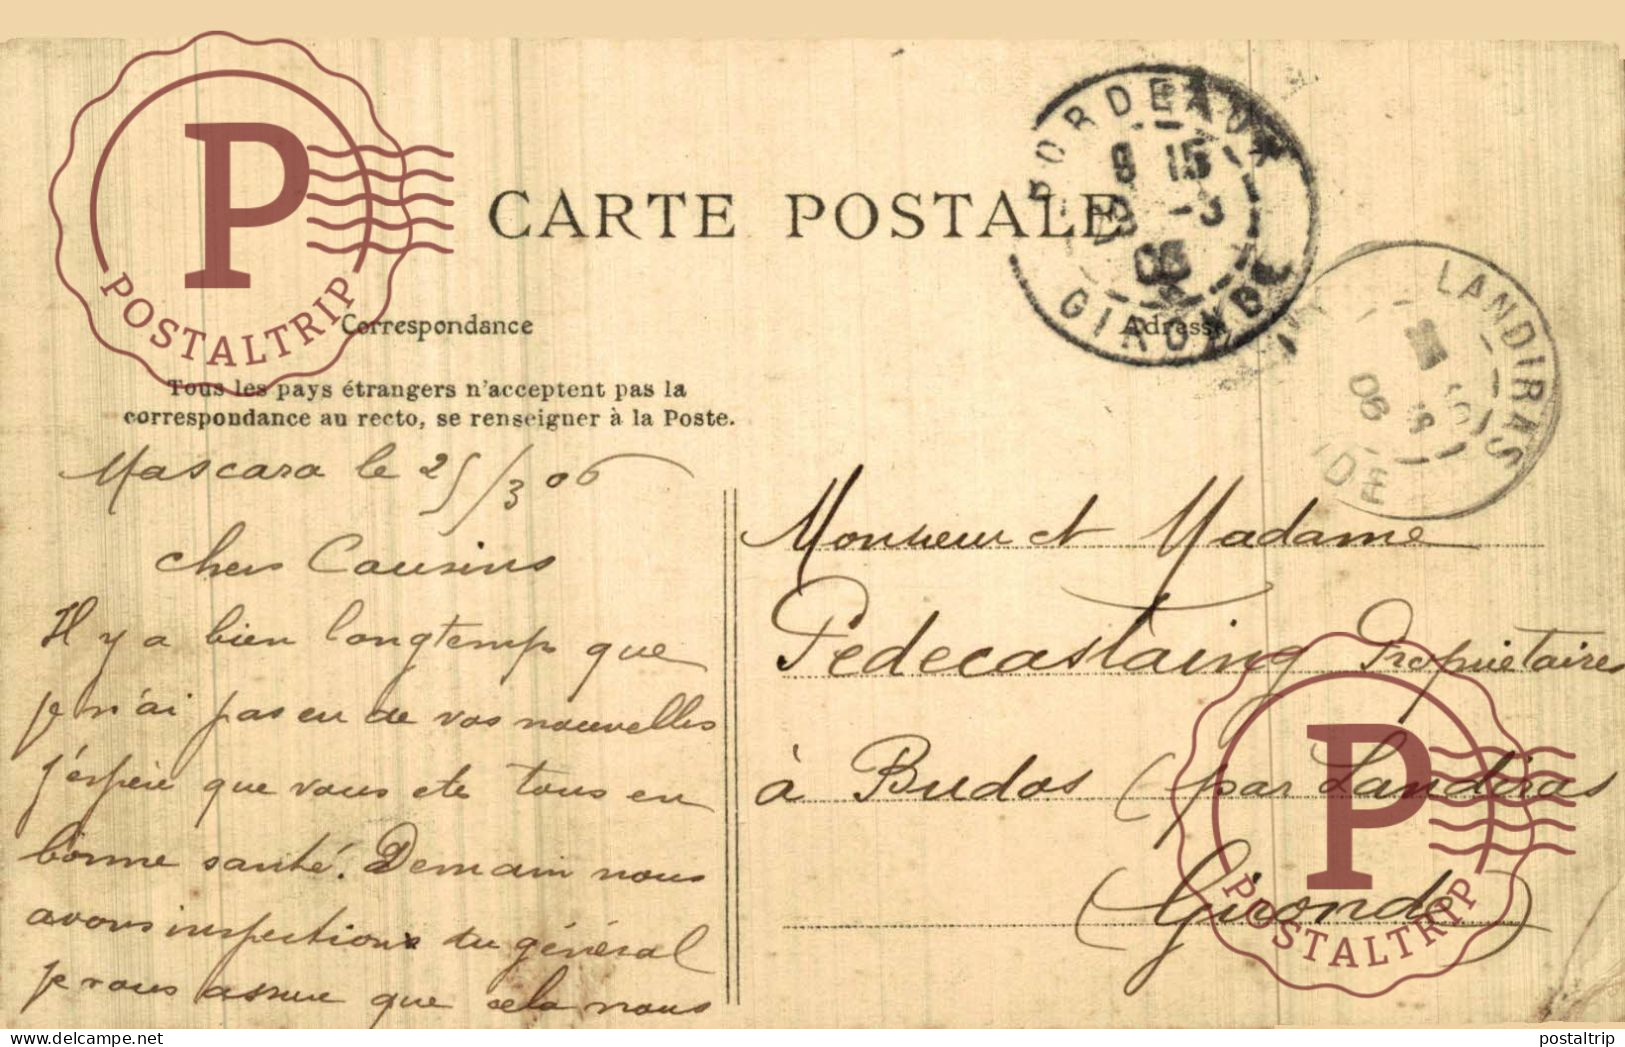 CARTE POSTALE
BORDEAUX
8 15
29 -3
06
GIRONDE
LANDIRAS
06
DE
Correspondance
Adresse
Tous les pays étrangers n'acceptent pas la
correspondance au recto, se renseigner à la Poste.
Mascara le 25/3 06
chers Cousins
Il y a bien longtemps que
je n'ai pas eu de vos nouvelles
j'espère que vous ete tous en
bonne santé. Demain nous
avons inspection du général
je vous assure que cela nous
Monsieur et Madame
Pedecastaing Propriétaires
à Budos (par Landiras
(Gironde)
P
POSTALTRIP
P
POSTALTRIP
www.delcampe.net
postaltrip